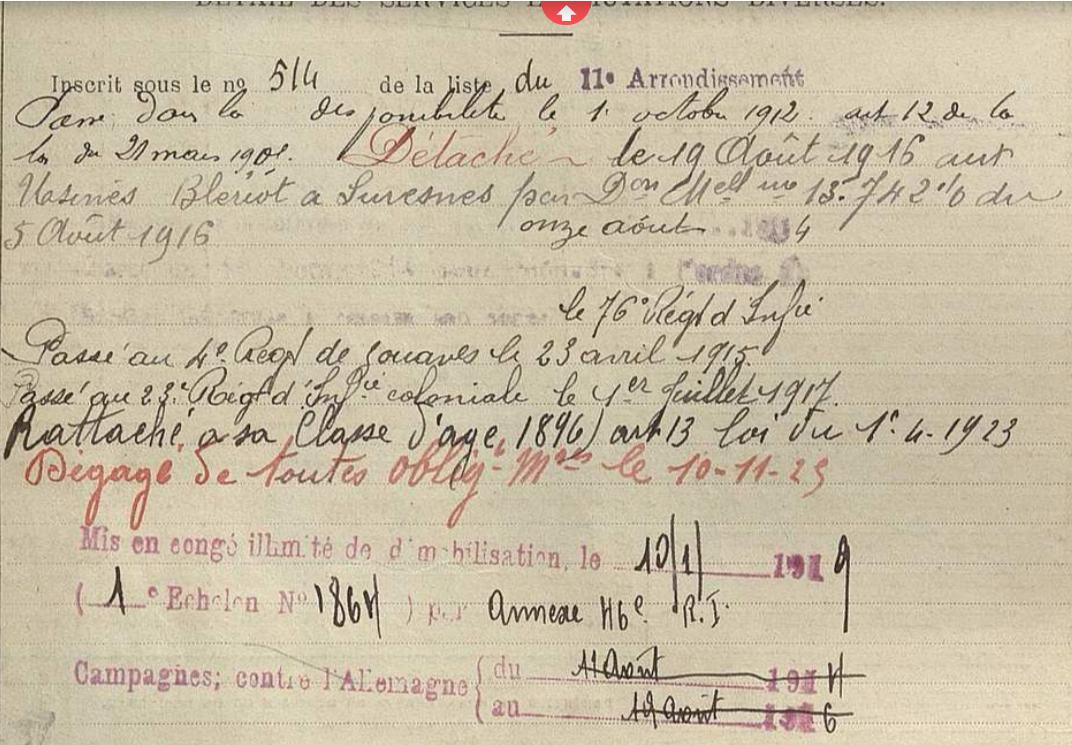 DÉTAIL DES SERVICES ET MUTATIONS DIVERSES.
Inscrit sous le no 514 de la liste du 11e Arrondissement
Passé dans la disponibilité le 1 octobre 1912. art 12 de la
loi du 21 mars 1905. Détaché le 19 Août 1916 aux
Usines Blériot a Suresnes par Don Mell no 13.742 % du
5 Août 1916 onze août 1914
le 76e Régt d'Infie
Passé au 4e Regt de zouaves le 23 avril 1915.
Passé au 23e Régt d'Infie coloniale le 1er Juillet 1917.
Rattaché a sa Classe d'age 1896) art 13 loi du 1.4.1923
Dégagé de toutes oblig. Mres le 10-11-25
Mis en congé illimité de démobilisation, le 10/1/ 1919
( 1e Echelon No 1864 ) par Annexe 46e R.I.
Campagnes; contre l'Allemagne { du 11 Août 1914
au 19 août 1916